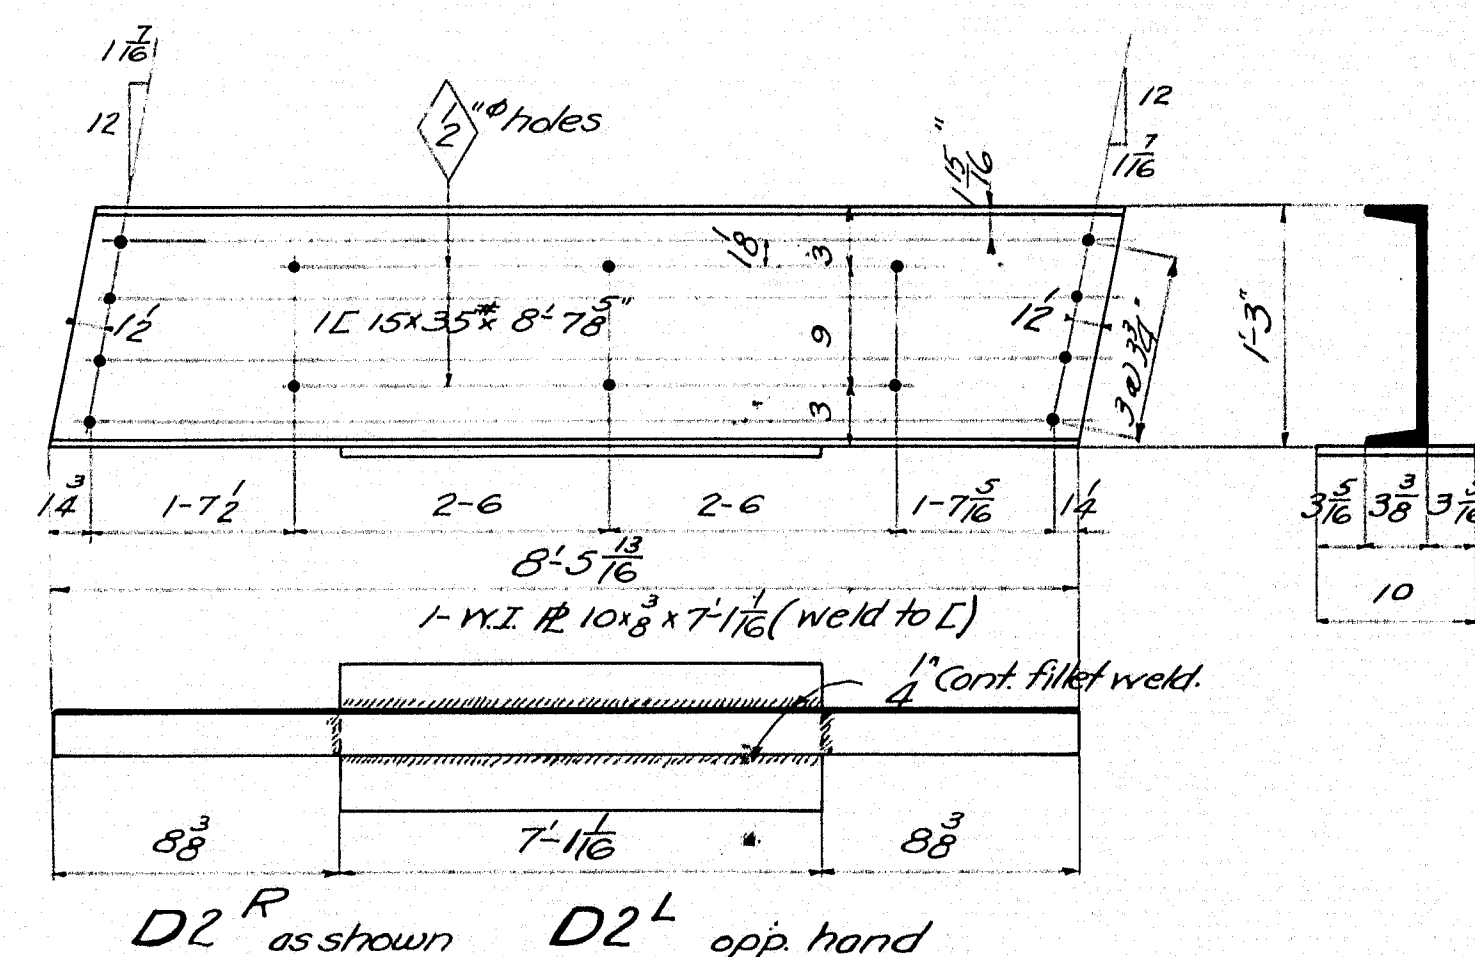 1 7/16
12
1/2 "φ holes
1 15/16 "
12
1 7/16
1 1/8
3
1 1/2
1[ 15x35# x 8'-7 5/8"
9
1 1/2
3 @ 3 3/4"
1'-3"
3
1 3/4
1-7 1/2
2-6
2-6
1-7 5/16
1 1/4
3 5/16
3 3/8
8'-5 13/16
10
1- W.I. PL 10x 3/8 x 7'-1 1/16 (weld to [)
1/4" Cont. fillet weld.
8 3/8
7'-1 1/16
8 3/8
D2 R as shown D2 L opp. hand